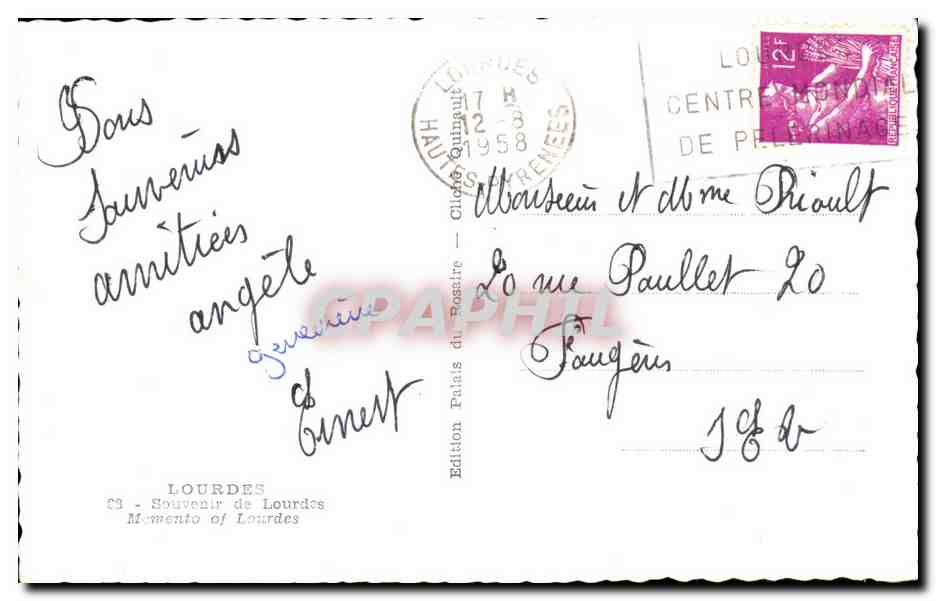 Bons
souvenirs
amitiées
angèle
geneviève
Ernest
LOURDES
- Souvenir de Lourdes
Memento of Lourdes
Edition Palais du Rosaire — Cliché Quinault
LOURDES
17 H
12 -8
1958
HAUTES-PYRENEES
CENTRE MONDIAL
DE PELERINAGE
12F
POSTES
REPUBLIQUE FRANÇAISE
Monsieur et Mme Prioult
20 rue Paullet 20
Fougères
I et V
CPAPHIL